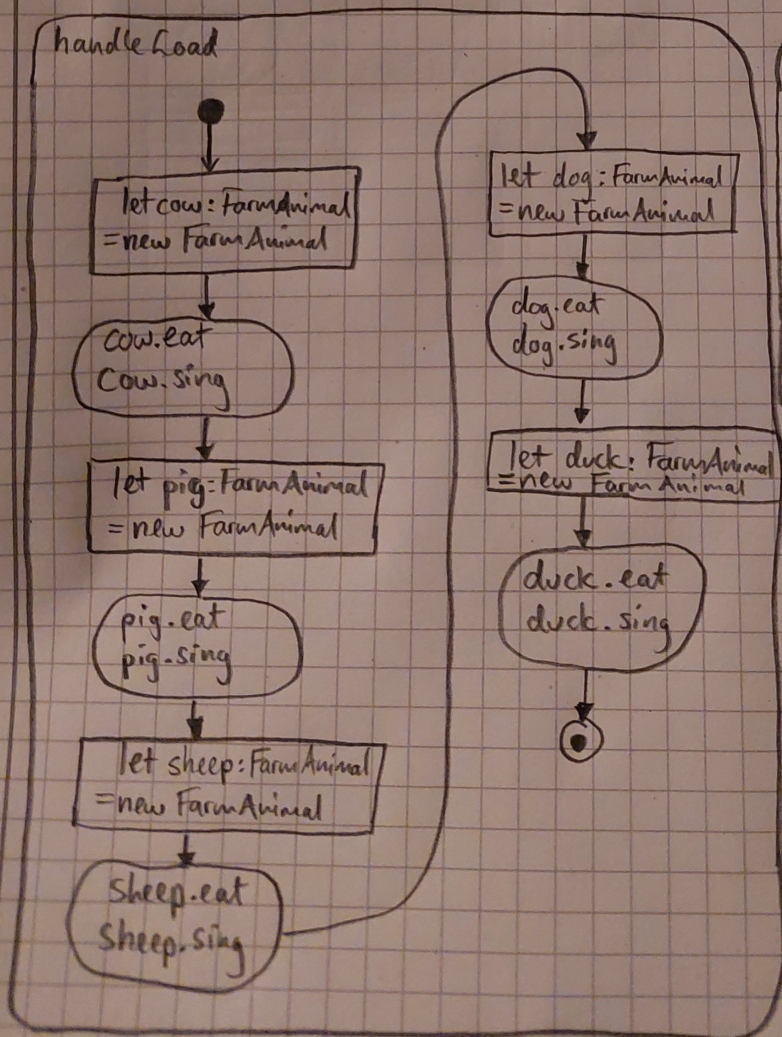 handleLoad
let cow: FarmAnimal
=new FarmAnimal
cow.eat
cow.sing
let pig: FarmAnimal
=new FarmAnimal
pig.eat
pig.sing
let sheep: FarmAnimal
=new FarmAnimal
sheep.eat
sheep.sing
let dog: FarmAnimal
=new FarmAnimal
dog.eat
dog.sing
let duck: FarmAnimal
=new FarmAnimal
duck.eat
duck.sing